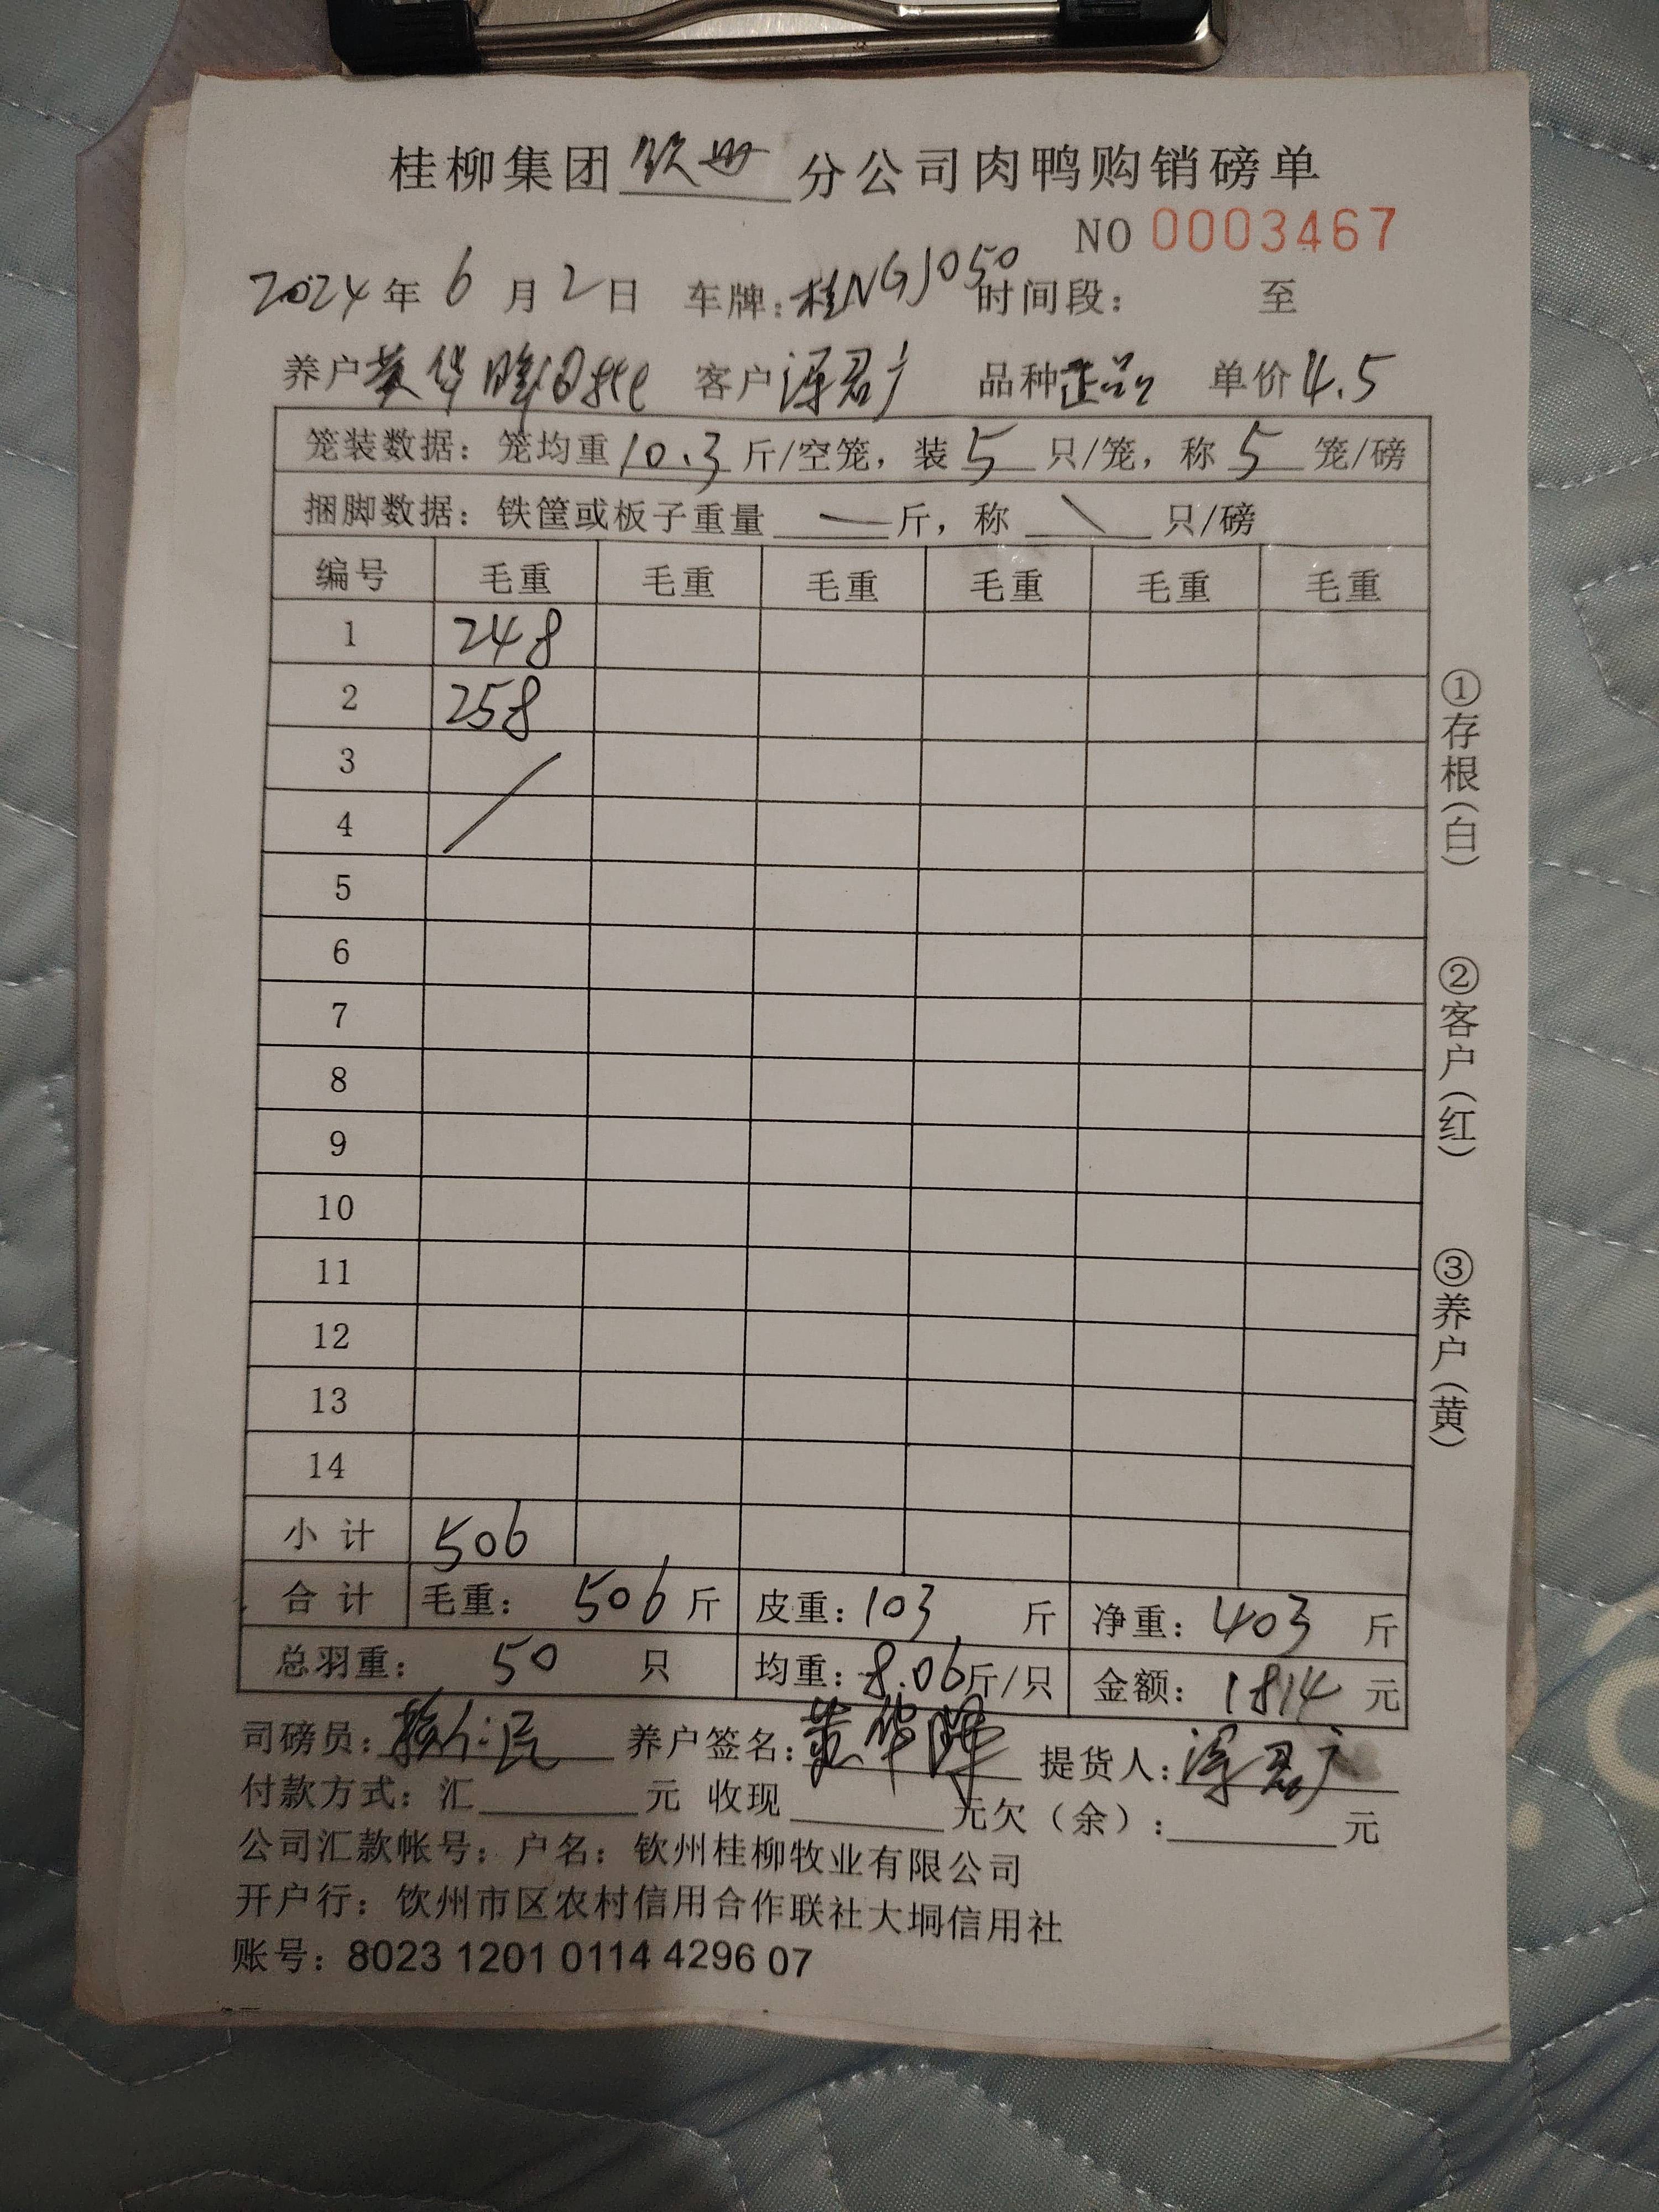 桂柳集团 钦州 分公司肉鸭购销磅单
NO 0003467
2024年 6 月 2 日 车牌：桂NGJ050 时间段： 至
养户 黄华晖 客户 君广 品种 正品 单价 4.5
笼装数据：笼均重 10.3 斤/空笼，装 5 只/笼，称 5 笼/磅
捆脚数据：铁筐或板子重量 — 斤，称 \ 只/磅
编号 毛重 毛重 毛重 毛重 毛重 毛重
1 248
2 258
3
4
5
6
7
8
9
10
11
12
13
14
小计 506
合计 毛重： 506 斤 皮重：103 斤 净重：403 斤
总羽重： 50 只 均重：8.06斤/只 金额：1814 元
司磅员： 仁民 养户签名：黄华晖 提货人： 君广
付款方式：汇 元 收现 元欠（余）： 元
公司汇款帐号：户名：钦州桂柳牧业有限公司
开户行：钦州市区农村信用合作联社大垌信用社
账号：8023 1201 0114 4296 07
①存根（白）
②客户（红）
③养户（黄）